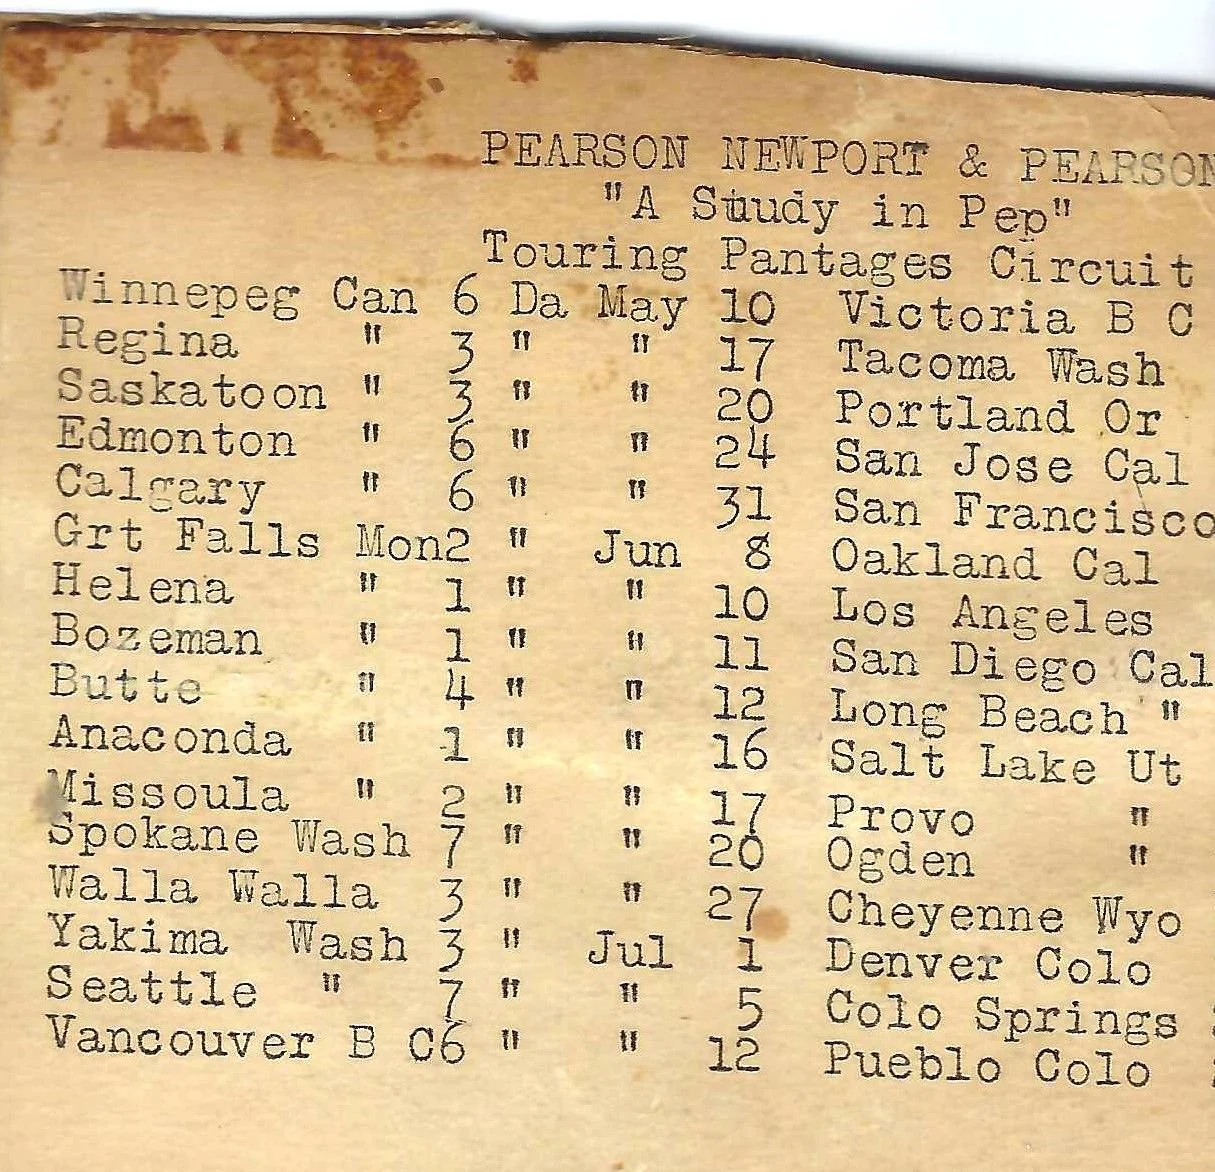 PEARSON NEWPORT & PEARSON
"A Stuudy in Pep"
Touring Pantages Circuit
Winnepeg Can 6 Da May 10 Victoria B C
Regina " 3 " " 17 Tacoma Wash
Saskatoon " 3 " " 20 Portland Or
Edmonton " 6 " " 24 San Jose Cal
Calgary " 6 " " 31 San Francisco
Grt Falls Mon2 " Jun 8 Oakland Cal
Helena " 1 " " 10 Los Angeles
Bozeman " 1 " " 11 San Diego Cal
Butte " 4 " " 12 Long Beach "
Anaconda " 1 " " 16 Salt Lake Ut
Missoula " 2 " " 17 Provo "
Spokane Wash 7 " " 20 Ogden "
Walla Walla 3 " " 27 Cheyenne Wyo
Yakima Wash 3 " Jul 1 Denver Colo
Seattle " 7 " " 5 Colo Springs
Vancouver B C6 " " 12 Pueblo Colo